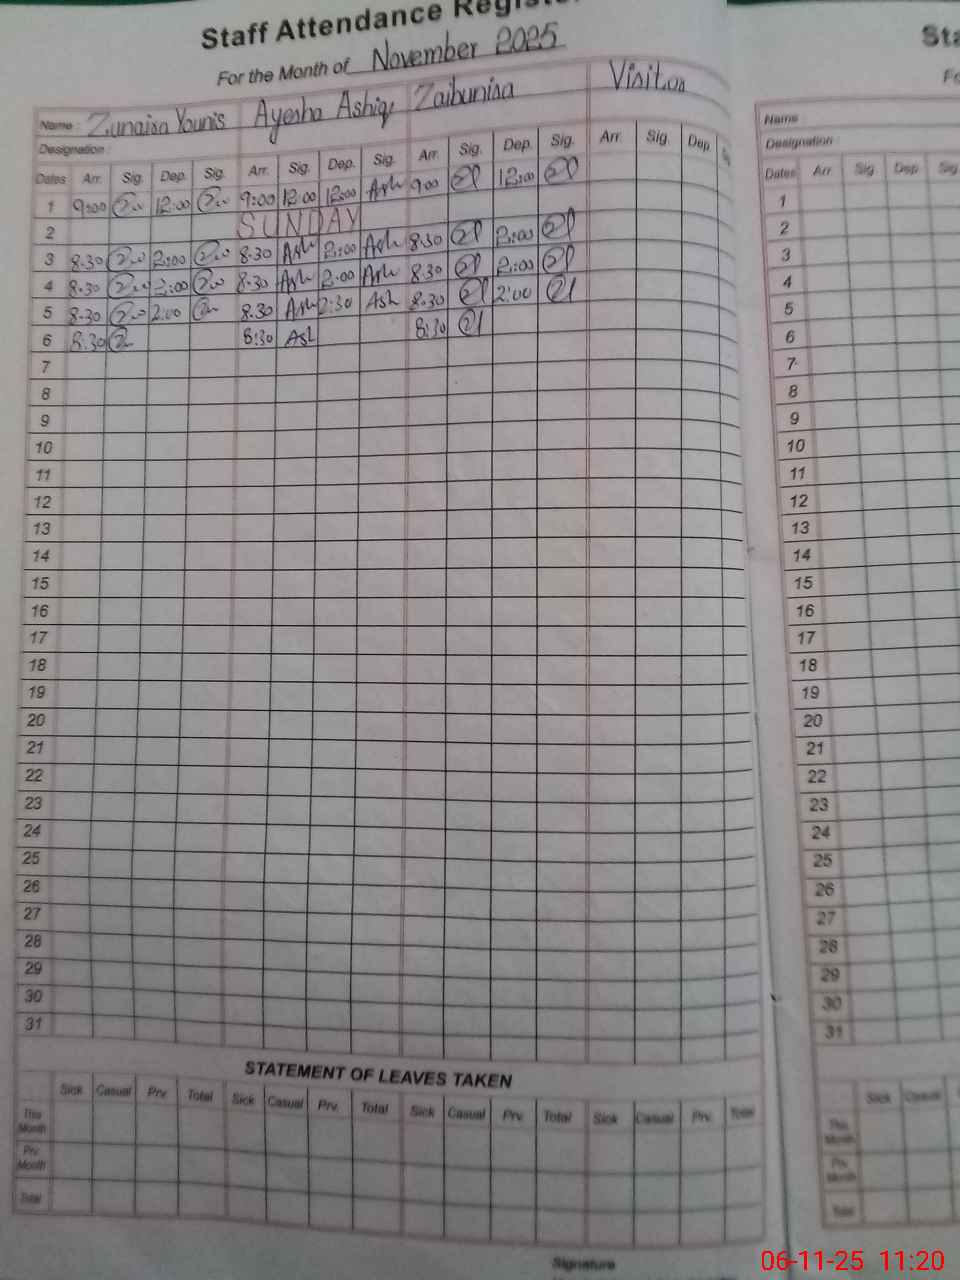 Staff Attendance Register
For the Month of November 2025
Name : Zunaisa Younis Ayesha Ashiq Zaibunisa Visitor
Designation :
Dates Arr. Sig. Dep. Sig. Arr. Sig. Dep. Sig. Arr. Sig. Dep. Sig. Arr. Sig. Dep.
1 9:00 12:00 9:00 12:00 12:00 Ash 9:00 12:00
2 SUNDAY
3 8:30 2:00 8:30 Ash 2:00 Ash 8:30 2:00
4 8:30 2:00 8:30 Ash 2:00 Ash 8:30 2:00
5 8:30 2:00 8:30 Ash 2:30 Ash 8:30 2:00
6 8:30 8:30 Ash 8:30
7
8
9
10
11
12
13
14
15
16
17
18
19
20
21
22
23
24
25
26
27
28
29
30
31
STATEMENT OF LEAVES TAKEN
Sick Casual Prv. Total Sick Casual Prv. Total Sick Casual Prv. Total Sick Casual Prv. Total
This Month
Prv. Month
Total
Signature
Sta
Fo
Name
Designation
Dates Arr. Sig. Dep. Sig.
1
2
3
4
5
6
7
8
9
10
11
12
13
14
15
16
17
18
19
20
21
22
23
24
25
26
27
28
29
30
31
Sick Casual
This Month
Prv. Month
Total
06-11-25 11:20